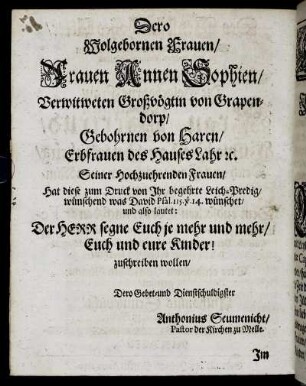 Dero
Wolgebornen Frauen/
Frauen Annen Sophien/
Verwitweten Großvögtin von Grapen-
dorp/
Gebohrnen von Haren/
Erbfrauen des Hauses Lahr ꝛc.
Seiner Hochzuehrenden Frauen/
Hat diese zum Druck von Ihr begehrte Leich-Predig/
wünschend was David Psal. 115. ℣. 14. wünschet/
und also lautet:
Der HERR segne Euch je mehr und mehr/
Euch und eure Kinder!
zuschreiben wollen/
Dero Gebet-und Dienstschuldigster
Anthonius Seumenicht/
Pastor der Kirchen zu Melle.
Im